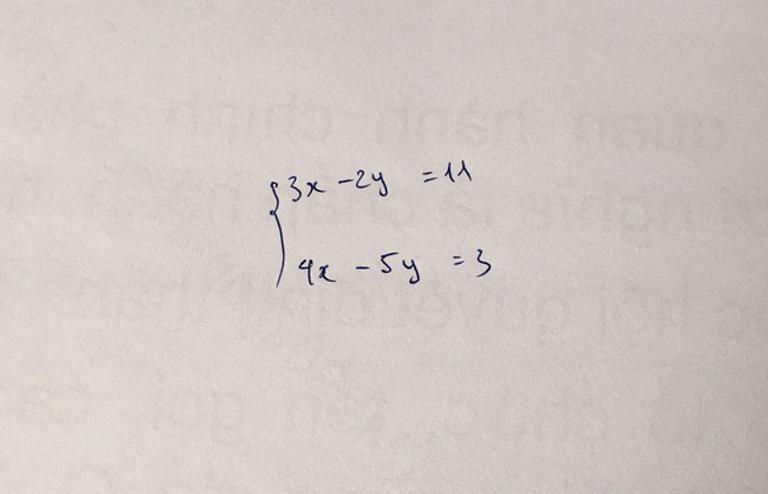 {3x - 2y = 11
4x - 5y = 3